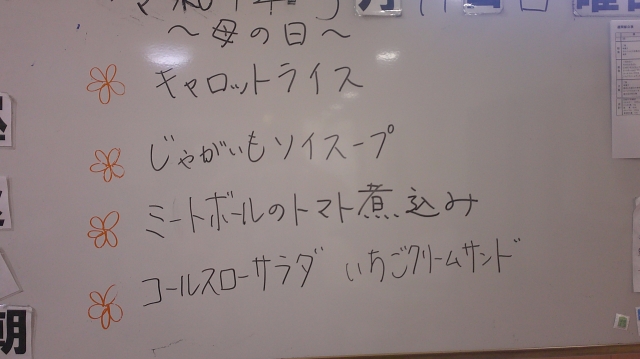 ～母の日～
キャロットライス
じゃがいもソイスープ
ミートボールのトマト煮込み
コールスローサラダ いちごクリームサンド
朝